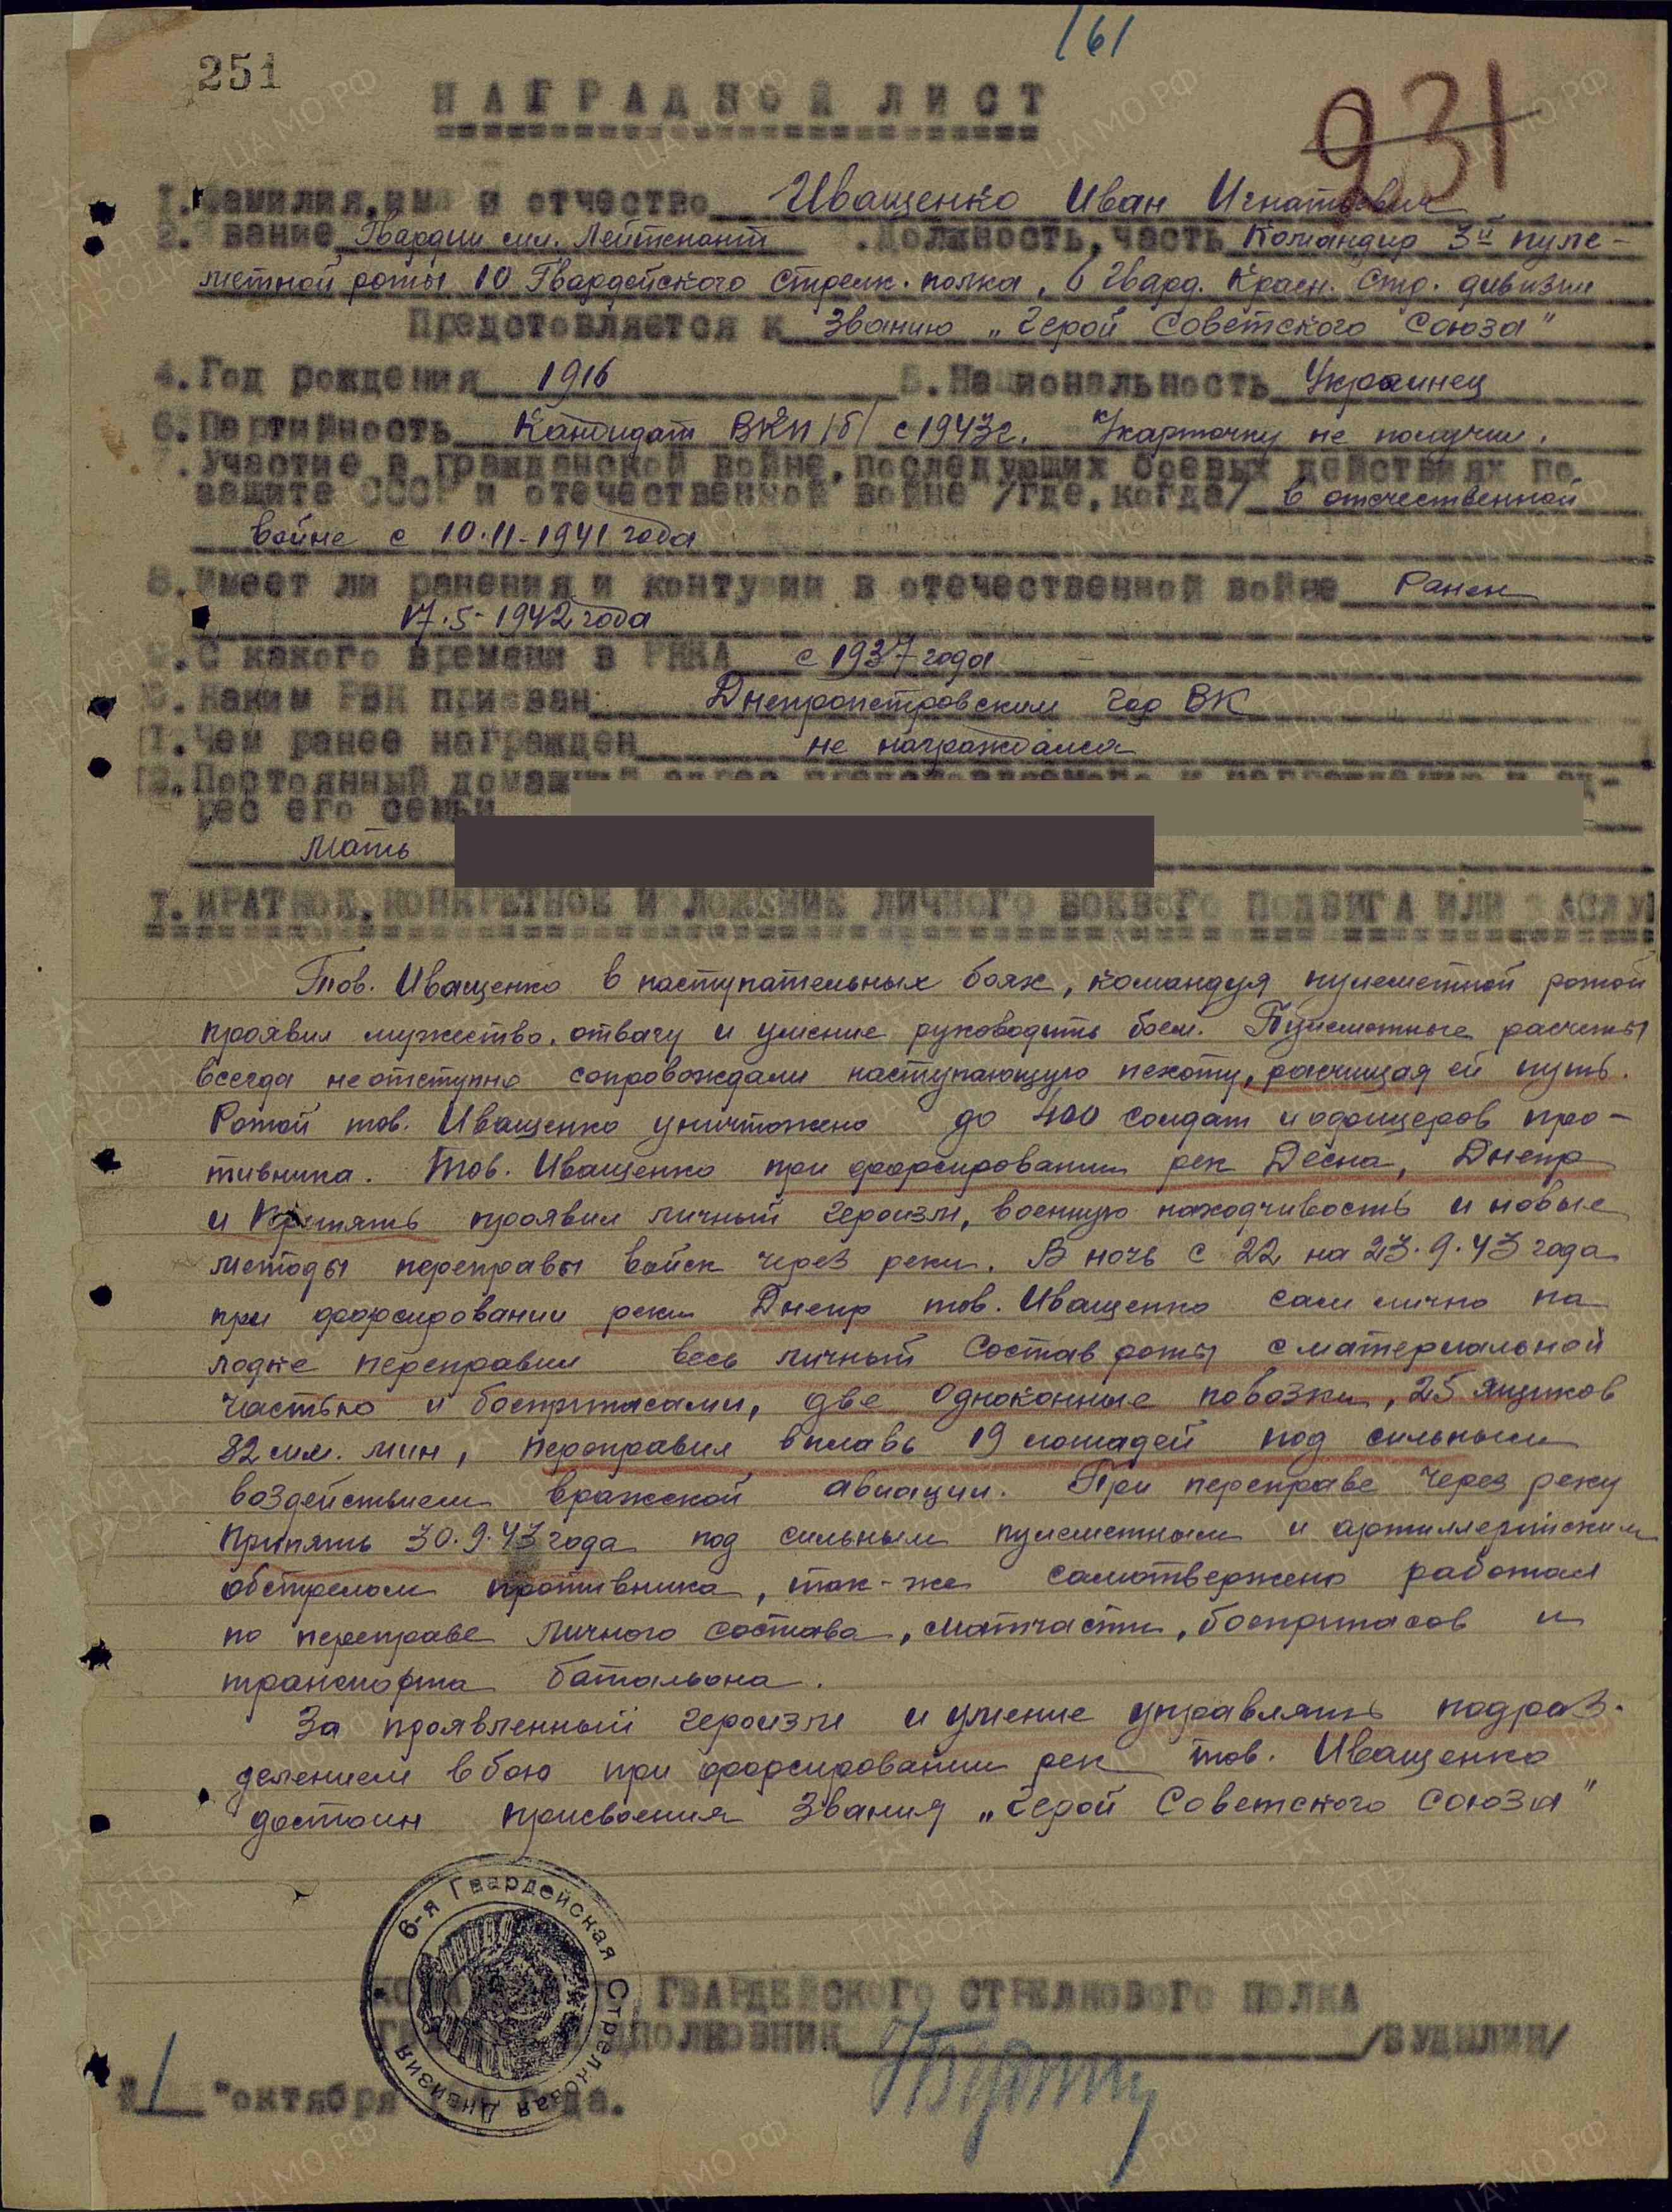 161
251
931
НАГРАДНОЙ ЛИСТ
1. Фамилия, имя и отчество Иващенко Иван Игнатьевич
2. Звание Гвардии мл. Лейтенант . Должность, часть Командир 3й пуле-
метной роты 10 Гвардейского Стрелк. полка, 6 Гвард. Красн. Стр. дивизии
Представляется к Званию „Герой Советского Союза"
4. Год рождения 1916 5. Национальность Украинец
6. Партийность Кандидат ВКП/б/ с 1943г. К/карточку не получил.
7. Участие в гражданской войне, последующих боевых действиях по
защите СССР и отечественной войне /где, когда/ в отечественной
войне с 10.11-1941 года
8. Имеет ли ранения и контузии в отечественной войне Ранен
17.5-1942 года
9. С какого времени в РККА с 1937 года
10. Каким РВК призван Днепропетровским гор ВК
11. Чем ранее награжден не награждался
12. Постоянный домашний адрес представляемого к награждению и ад-
рес его семьи
мать
I. КРАТКОЕ, КОНКРЕТНОЕ ИЗЛОЖЕНИЕ ЛИЧНОГО БОЕВОГО ПОДВИГА ИЛИ ЗАСЛУ
Тов. Иващенко в наступательных боях, командуя пулеметной ротой
проявил мужество, отвагу и умение руководить боем. Пулеметные расчеты
всегда неотступно сопровождали наступающую пехоту, расчищая ей путь.
Ротой тов. Иващенко уничтожено до 400 солдат и офицеров про-
тивника. Тов. Иващенко при форсировании рек Десна, Днепр
и Припять проявил личный героизм, военную находчивость и новые
методы переправы войск через реки. В ночь с 22 на 23.9.43 года
при форсировании реки Днепр тов. Иващенко сам лично на
лодке переправил весь личный состав роты с материальной
частью и боеприпасами, две одноконные повозки, 25 ящиков
82 мм. мин, переправил вплавь 19 лошадей под сильным
воздействием вражеской авиации. При переправе через реку
Припять 30.9.43 года под сильным пулеметным и артиллерийским
обстрелом противника, так-же самотвержено работал
по переправе личного состава, матчасти, боеприпасов и
транспорта батальона.
За проявленный героизм и умение управлять подраз-
делением в бою при форсировании рек тов. Иващенко
достоин присвоения Звания „Герой Советского Союза"
6-я Гвардейская Стрелковая Дивизия
ГВАРДЕЙСКОГО СТРЕЛКОВОГО ПОЛКА
ПОДПОЛКОВНИК /БУДИЛИН/
"1" октября года.